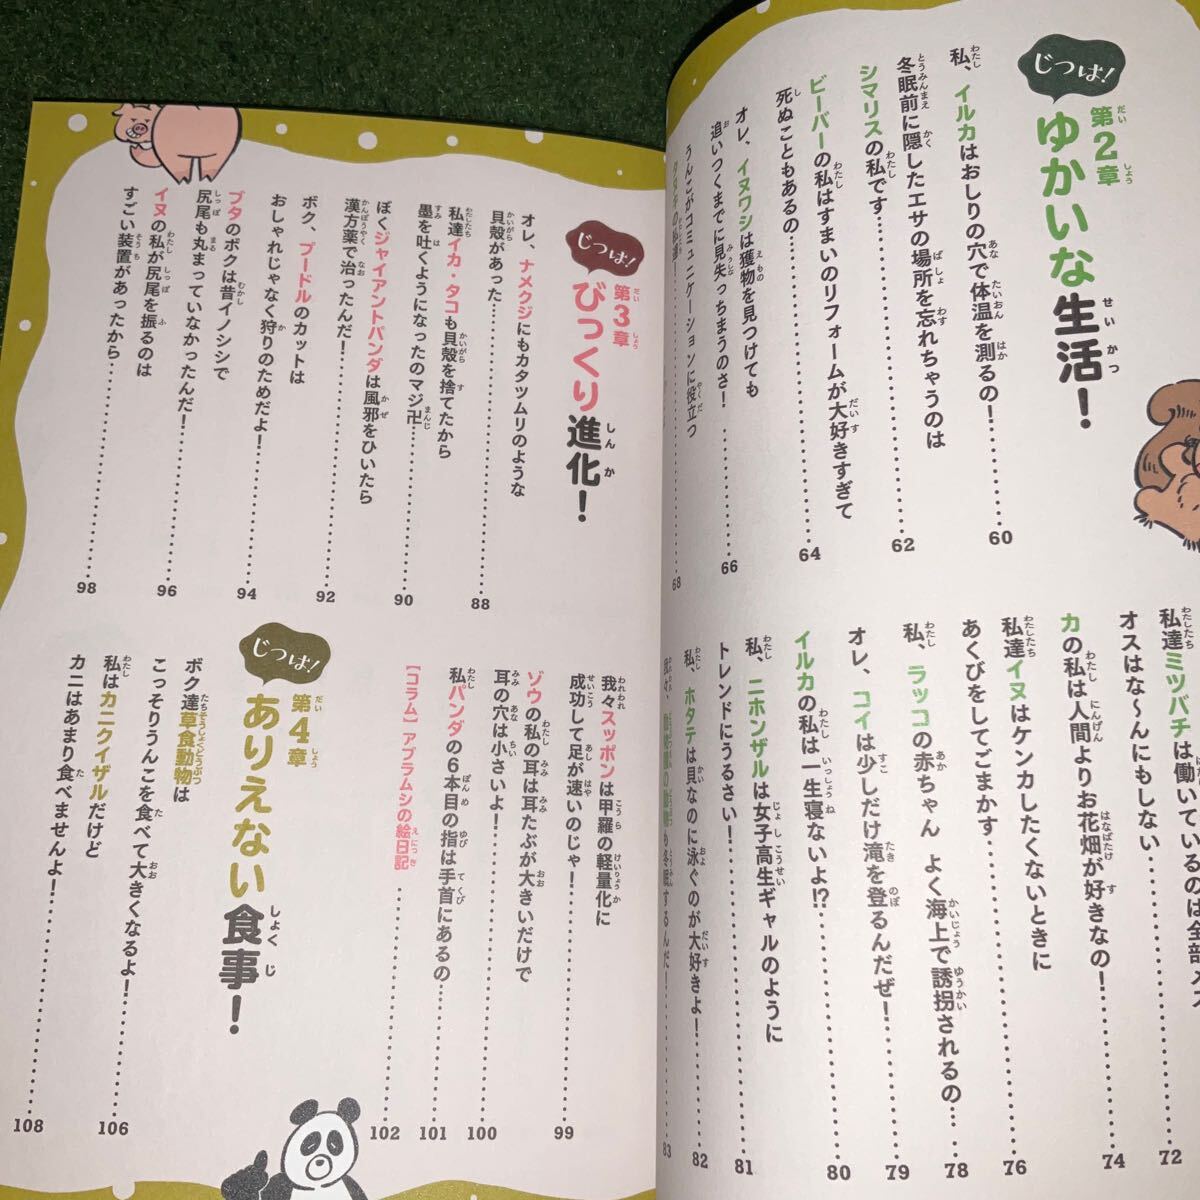 じつは！
第2章
ゆかいな生活！
私、イルカはおしりの穴で体温を測るの！ 60
冬眠前に隠したエサの場所を忘れちゃうのは
シマリスの私です 62
ビーバーの私はすまいのリフォームが大好きすぎて
死ぬこともあるの 64
オレ、イヌワシは獲物を見つけても
追いつくまでに見失っちまうのさ！ 66
うんこがコミュニケーションに役立つ
68
私達ミツバチは働いているのは全部メス
オスはな〜んにもしない 72
カの私は人間よりお花畑が好きなの！ 74
私達イヌはケンカしたくないときに
あくびをしてごまかす 76
私、ラッコの赤ちゃん よく海上で誘拐されるの 78
オレ、コイは少しだけ滝を登るんだぜ！ 79
イルカの私は一生寝ないよ！？ 80
私、ニホンザルは女子高生ギャルのように
トレンドにうるさい！ 81
私、ホタテは貝なのに泳ぐのが大好きよ！ 82
も冬眠するんだ！ 83
じつは！
第3章
びっくり進化！
オレ、ナメクジにもカタツムリのような
貝殻があった 88
私達イカ・タコも貝殻を捨てたから
墨を吐くようになったのマジ卍 90
ぼくジャイアントパンダは風邪をひいたら
漢方薬で治ったんだ！ 92
ボク、プードルのカットは
おしゃれじゃなく狩りのためだよ！ 94
ブタのボクは昔イノシシで
尻尾も丸まっていなかったんだ！ 96
イヌの私が尻尾を振るのは
すごい装置があったから 98
我々スッポンは甲羅の軽量化に
成功して足が速いのじゃ！ 99
ゾウの私の耳は耳たぶが大きいだけで
耳の穴は小さいよ！ 100
私パンダの6本目の指は手首にあるの 101
【コラム】アブラムシの絵日記 102
じつは！
第4章
ありえない食事！
ボク達草食動物は
こっそりうんこを食べて大きくなるよ！ 106
私はカニクイザルだけど
カニはあまり食べませんよ！ 108